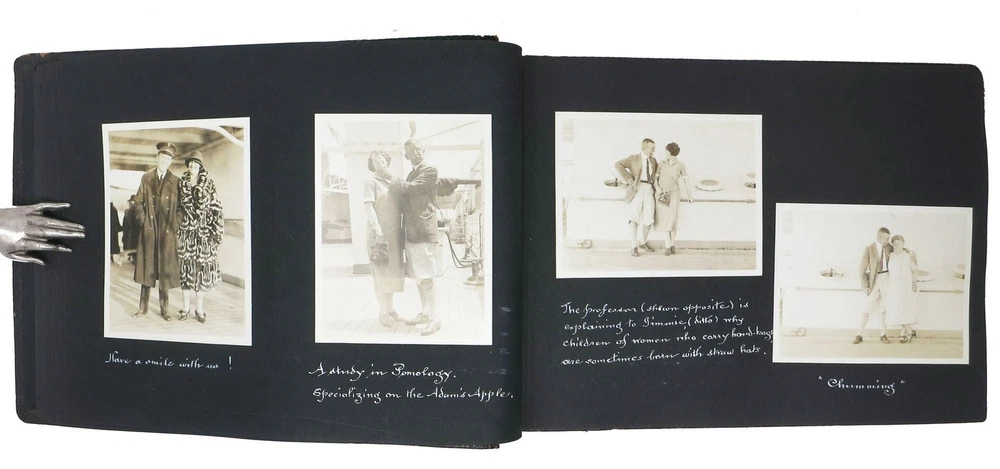 Have a smile with us!
A study in Pomology.
Specializing on the Adam's Apple.
The Professor (shown opposite) is
explaining to Jimmie (ditto) why
children of women who carry hand-bags
are sometimes born with straw hats.
"Chumming"